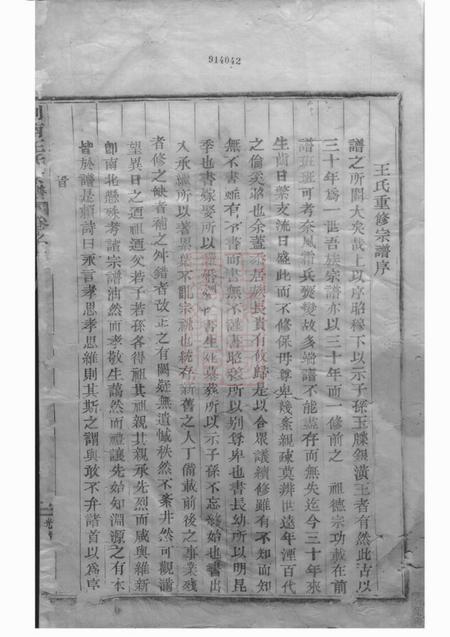 914042
王氏重修宗譜序
譜之所關大矣哉上以序昭穆下以示子孫玉牒銀潢王者有然此古以
三十年為一世吾族宗譜亦以三十年而一修前之 祖德宗功載在前
譜班班可考奈風霜兵燹變故多端譜不能嘉存而無失迄今三十年來
生齒日繁支流日盛此而不修保毋尊卑幾紊親疎莫辨世遠年湮百代
之倫矣邪也余蓋忝居族長責有攸歸是以合眾議續修雖有不知而知
無不書雖有不書而書無不謹書昭穆所以別尊卑也書長幼所以明昆
季也書嫁娶所以 婚姻 書生 墓葬所以示子孫不忘終始也書出
入承繼所以著 葉不亂宗祧也統存新舊之人丁備載前後之事業殘
者修之缺者補之舛錯者改正之有闕疑無遺憾秩然不紊井然可觀溯
望異日之迺祖迺父若子若孫各得祖其祖親其親承先烈而咸與維新
即南北懸殊考諸宗譜油然而孝敬生藹然而禮讓先始知淵源之有本
皆於譜是賴詩曰永言孝思孝思維則其斯之謂與敢不弁諸首以為序
首